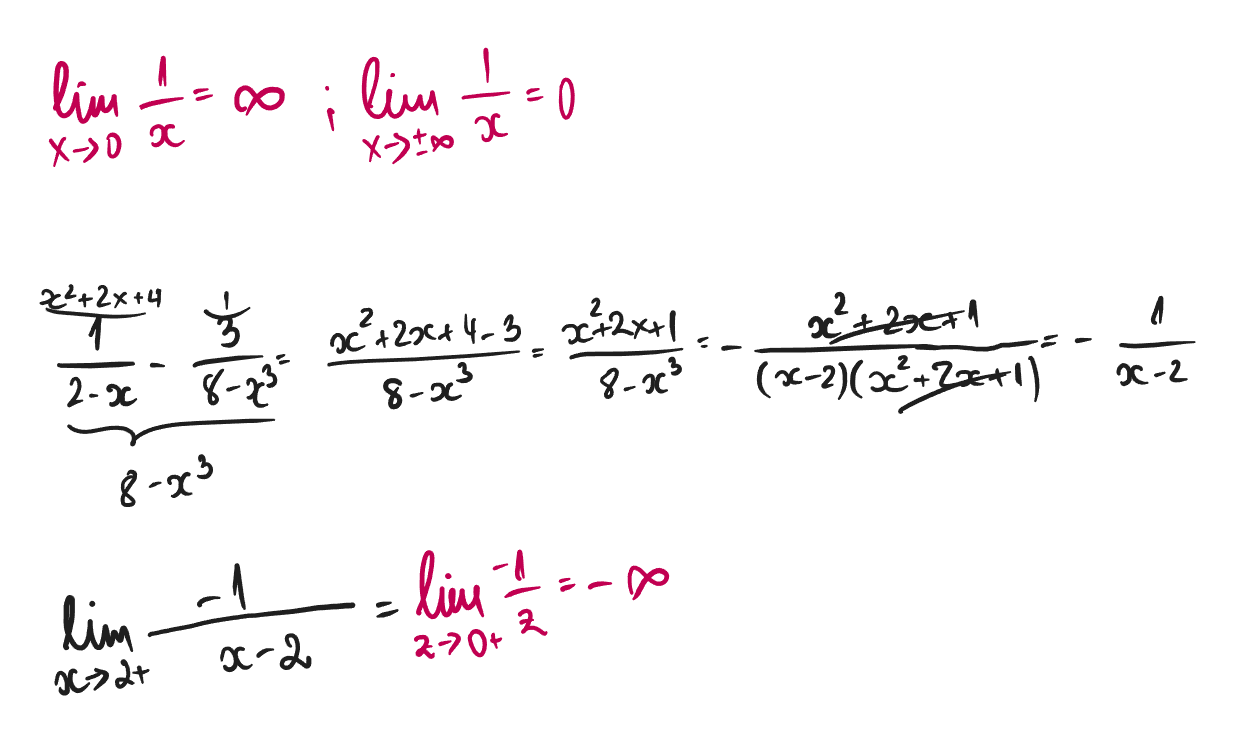 lim x→0 1/x = ∞ ; lim x→±∞ 1/x = 0
x²+2x+4 1
1/(2-x) - 3/(8-x³) = (x²+2x+4-3)/(8-x³) = (x²+2x+1)/(8-x³) = - (x²+2x+1)/((x-2)(x²+2x+1)) = - 1/(x-2)
8-x³
lim x→2+ -1/(x-2) = lim z→0+ -1/z = -∞